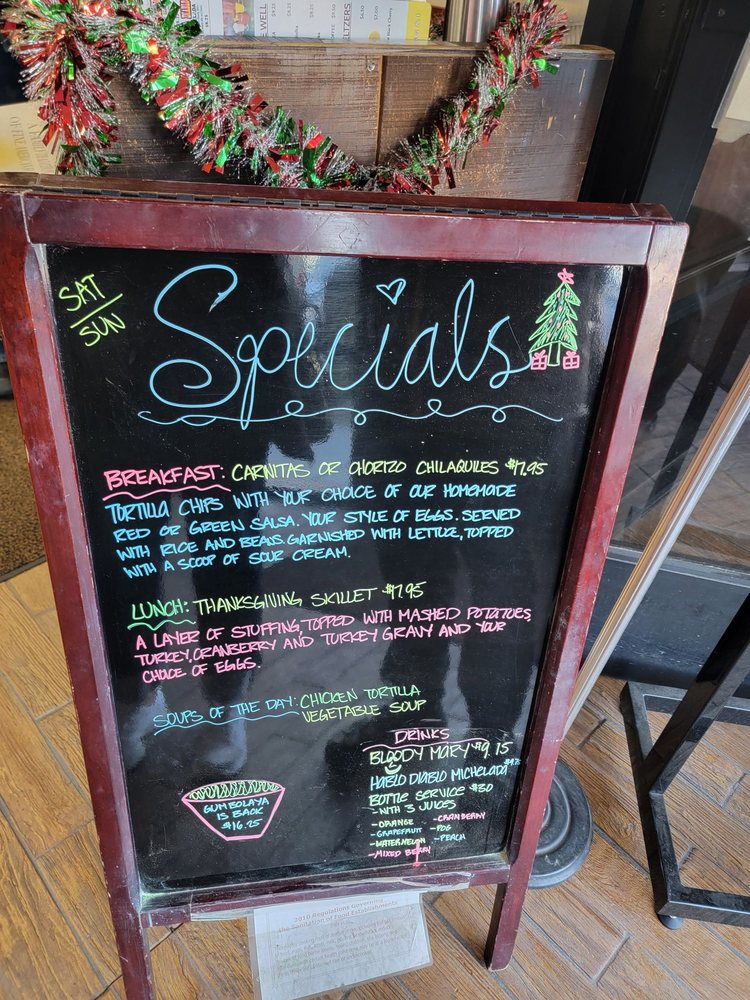 WELL
SELTZERS
SAT
SUN
Specials
BREAKFAST: CARNITAS OR CHORIZO CHILAQUILES $17.95
TORTILLA CHIPS WITH YOUR CHOICE OF OUR HOMEMADE
RED OR GREEN SALSA. YOUR STYLE OF EGGS. SERVED
WITH RICE AND BEANS. GARNISHED WITH LETTUCE, TOPPED
WITH A SCOOP OF SOUR CREAM.
LUNCH: THANKSGIVING SKILLET $17.95
A LAYER OF STUFFING, TOPPED WITH MASHED POTATOES,
TURKEY, CRANBERRY AND TURKEY GRAVY AND YOUR
CHOICE OF EGGS.
SOUPS OF THE DAY: CHICKEN TORTILLA
VEGETABLE SOUP
DRINKS
BLOODY MARY $9.15
HABLO DIABLO MICHELADA
BOTTLE SERVICE $30
-WITH 3 JUICES
-ORANGE -CRANBERRY
-GRAPEFRUIT -POG
-WATERMELON -PEACH
-MIXED BERRY
GUMBOLAYA
IS BACK
$16.25
2010 Regulations Governing
the Sanitation of Food Establishments